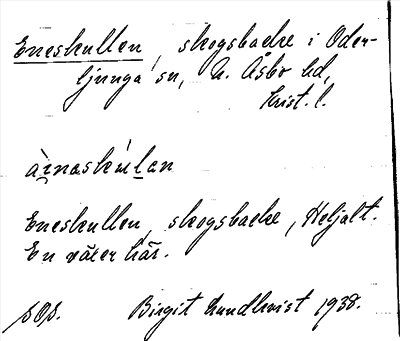 Eneskullen, skogsbacke i Oder-
ljunga sn, N. Åsbo hd,
Krist. l.
Eneskullen, skogsbacke, Heljalt.
En växer här.
SOS. Birgit Lundkvist 1938.